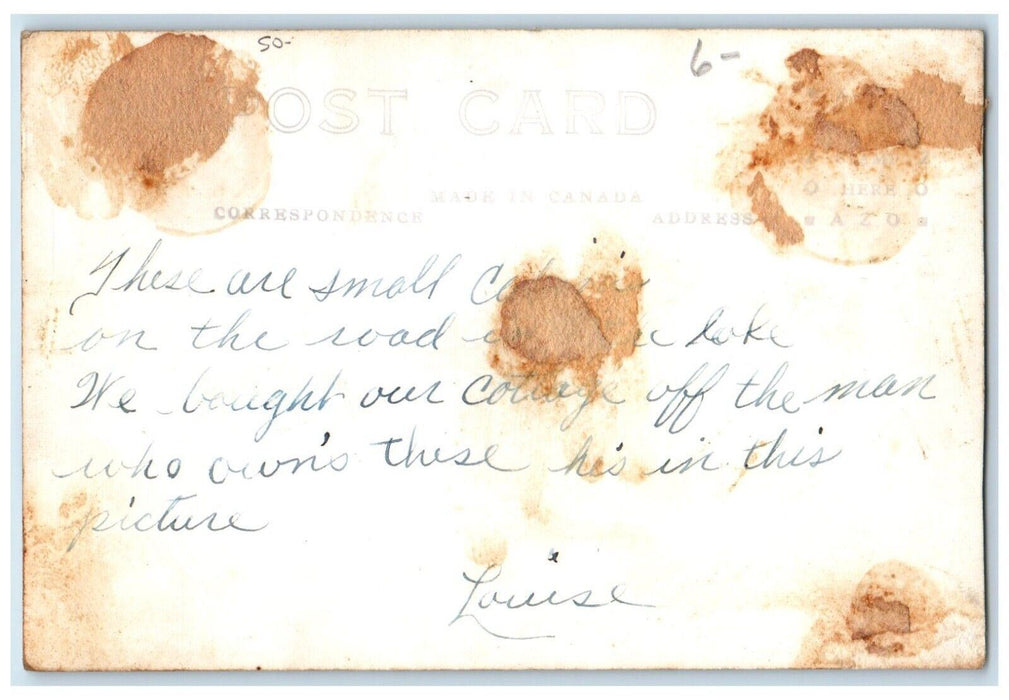 50-
6-
POST CARD
MADE IN CANADA
CORRESPONDENCE ADDRESS
HERE
AZO
These are small
on the road lake
We bought our cottage off the man
who own's these his in this
picture
Louise